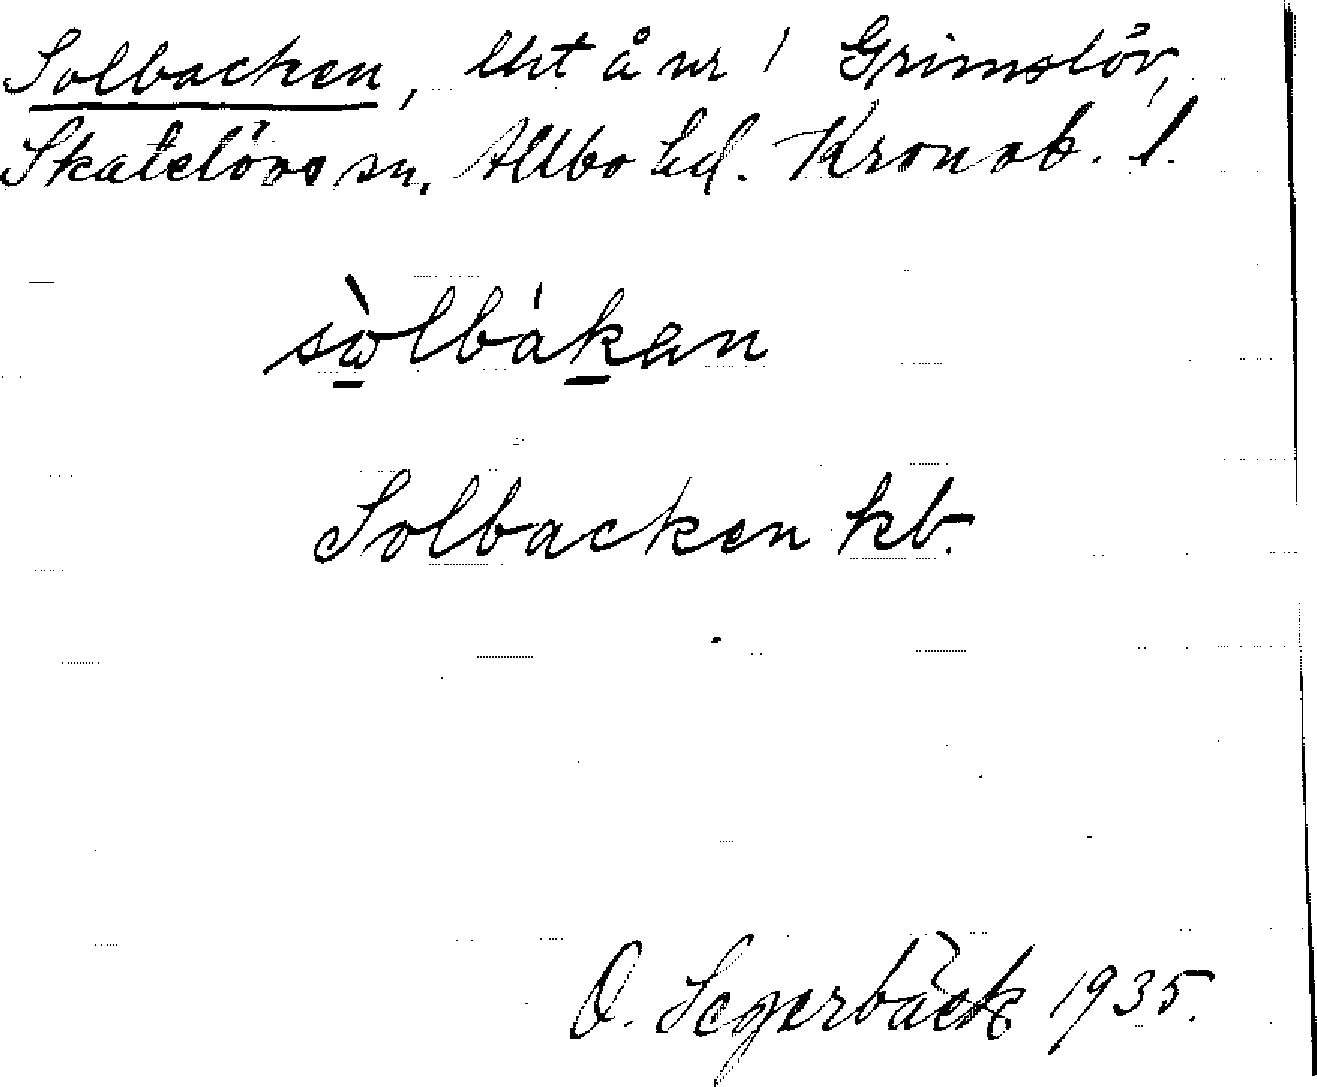 Solbacken, lht å nr 1 Grimslöv,
Skatelövs sn, Allbo hd. Kronob. l.
sὼlbákan
Solbacken kb.
O. Segerbäck 1935.